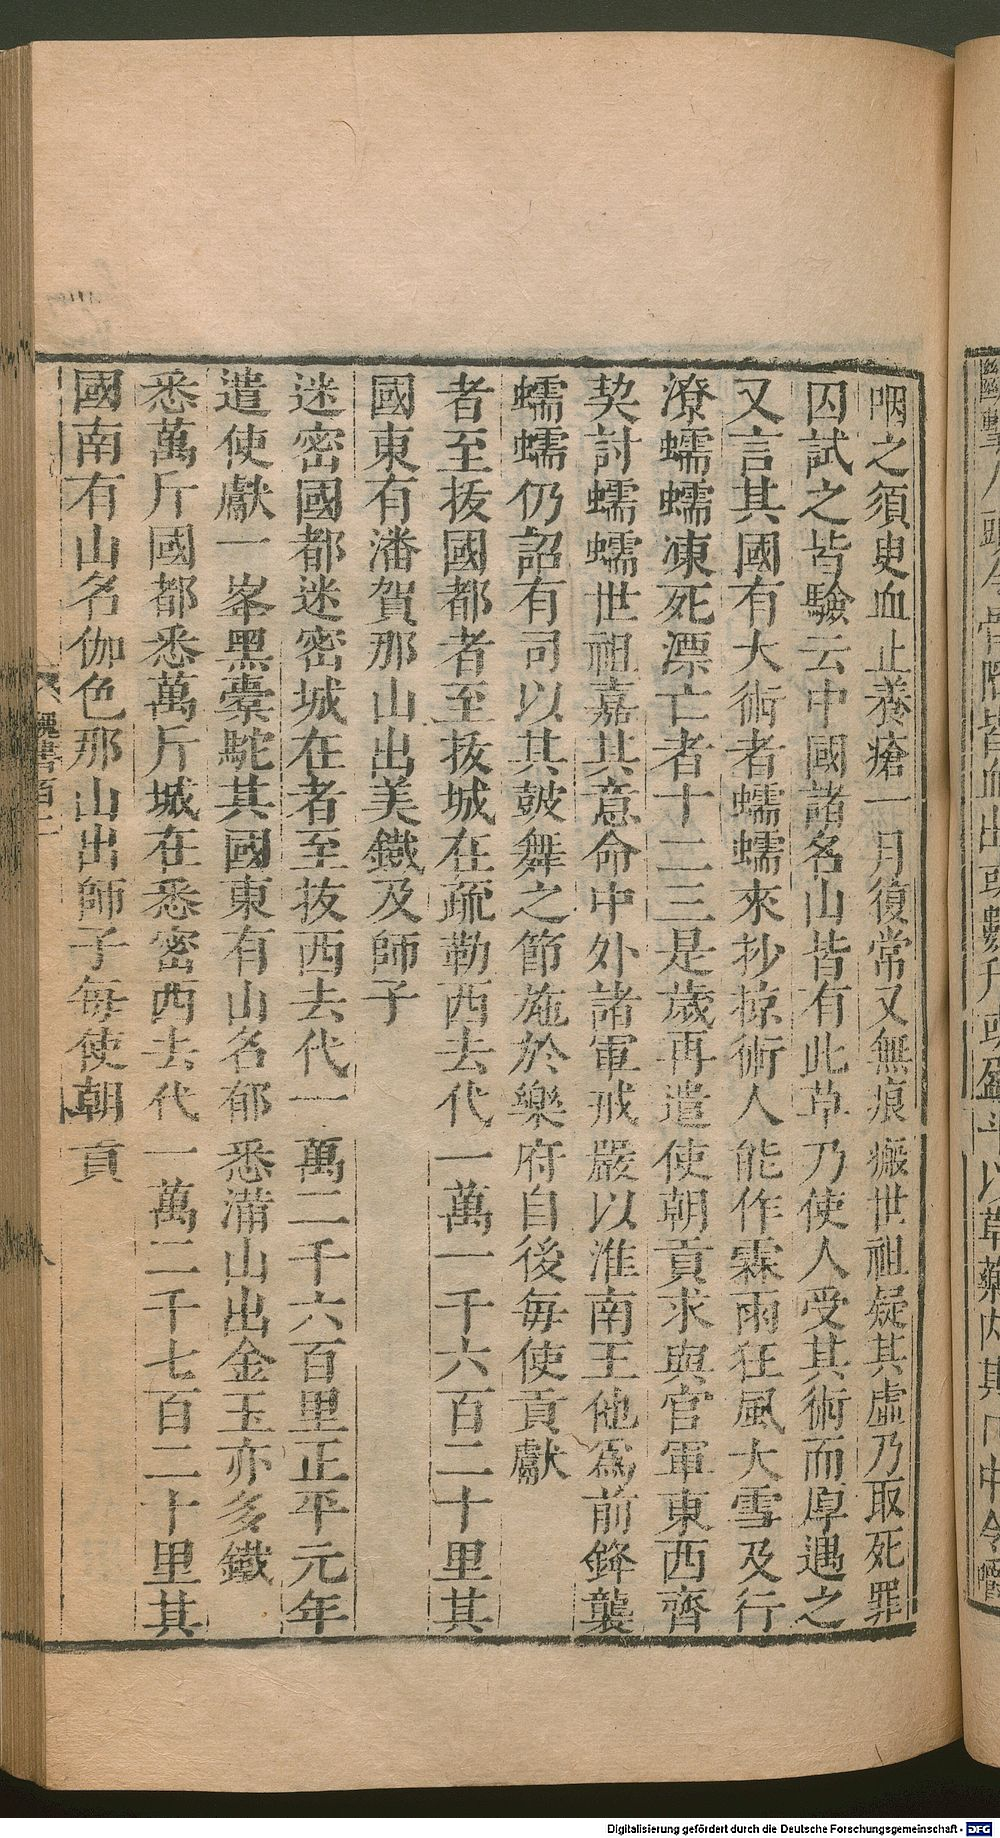 咽之須臾血止養瘡一月復常又無痕瘢世祖疑其虛乃取死罪
囚試之皆驗云中國諸名山皆有此草乃使人受其術而厚遇之
又言其國有大術者蠕蠕來抄掠術人能作霖雨狂風大雪及行
潦蠕蠕凍死漂亡者十二三是歲再遣使朝貢求與官軍東西齊
契討蠕蠕世祖嘉其意命中外諸軍戒嚴以淮南王他爲前鋒襲
蠕蠕仍詔有司以其鼓舞之節施於樂府自後每使貢獻
者至拔國都者至拔城在疏勒西去代一萬一千六百二十里其
國東有潘賀那山出美鐵及師子
迷密國都迷密城在者至拔西去代一萬二千六百里正平元年
遣使獻一峯黑橐駝其國東有山名郁悉滿山出金玉亦多鐵
悉萬斤國都悉萬斤城在悉密西去代一萬二千七百二十里其
國南有山名伽色那山出師子每使朝貢
魏書百二
八
Digitalisierung gefördert durch die Deutsche Forschungsgemeinschaft - DFG